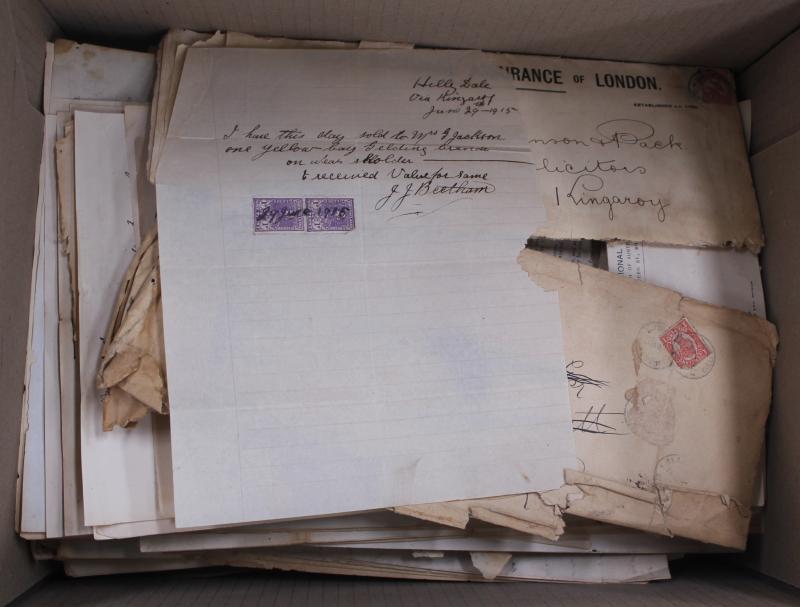 Hilly Dale
Via Kingaroy
June 29th - 1915
I have this day sold to Mrs G Jackson
one yellow bay Gelding
on near sholder
& received Value for same
J J Beetham
29 June 1915
URANCE OF LONDON.
ESTABLISHED
nson & Pack
licitors
Kingaroy
IONAL